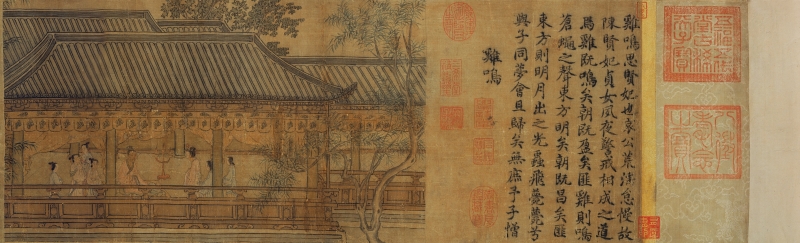 五福五代堂古稀天子寶
八徵耄念之寶
雞鳴思賢妃也哀公荒淫怠慢故
陳賢妃貞女夙夜警戒相成之道
焉雞既鳴矣朝既盈矣匪雞則鳴
蒼蠅之聲東方明矣朝既昌矣匪
東方則明月出之光蟲飛薨薨甘
與子同夢會且歸矣無庶予子憎
雞鳴